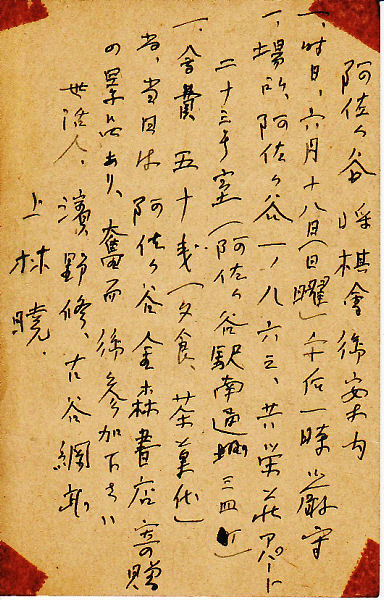 阿佐ヶ谷将棋會御案内
一、時日、六月十八日(日曜)午后一時 厳守
一、場所、阿佐ヶ谷一ノ八六三、共栄荘アパート
二十三号室(阿佐ヶ谷駅南通 三四丁)
一、會費 五十銭(夕食、茶菓代)
尚、当日は阿佐ヶ谷金森書店寄贈
の景品あり、奮而御参加下さい
世話人、濱野修、古谷綱武
上林暁.